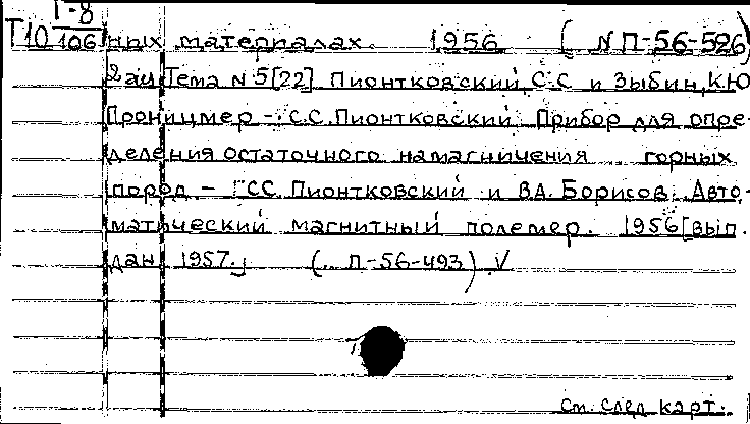 Г-8
Т10 106 ных материалах. 1956 (N П-56-526)
2 ац Тема N 5[22] Пионтковский, С.С и Зыбин, К.Ю
Проницмер - С.С. Пионтковский Прибор для опре-
деления остаточного намагничения горных
пород - С.С. Пионтковский и В.А. Борисов Авто-
матический магнитный полемер. 1956 [вып.
дан 1957.] (П-56-493) V
См. след карт.